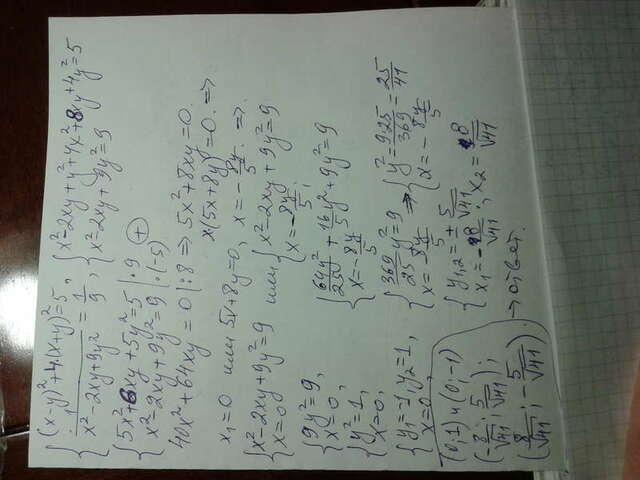 {(x-y)²+4(x+y)²=5, {x²-2xy+y²+4x²+8xy+4y²=5
{1/(x²-2xy+9y²)=1/9, {x²-2xy+9y²=9
{5x²+6xy+5y²=5 |·9
{x²-2xy+9y²=9 |·(-5) (+)
40x²+64xy=0 |:8 ⇒ 5x²+8xy=0.
x(5x+8y)=0. ⇒
x₁=0 или 5x+8y=0, x=-8y/5. ⇒
{x²-2xy+9y²=9 или {x²-2xy+9y²=9
{x=0 {x=-8y/5;
{9y²=9, {64y²/25+16/5y²+9y²=9
{x=0, {x=-8y/5
{y²=1, {369/25y²=9 ⇒ {y²=9·25/369=25/41
{x=0, {x=-8y/5 {x=-8y/5
{y₁=-1, y₂=1, {y₁,₂=±5/√41
{x=0 {x₁=-8/√41, x₂=8/√41
(0;1) и (0;-1)
(-8/√41; 5/√41);
(8/√41; -5/√41). → ответ.